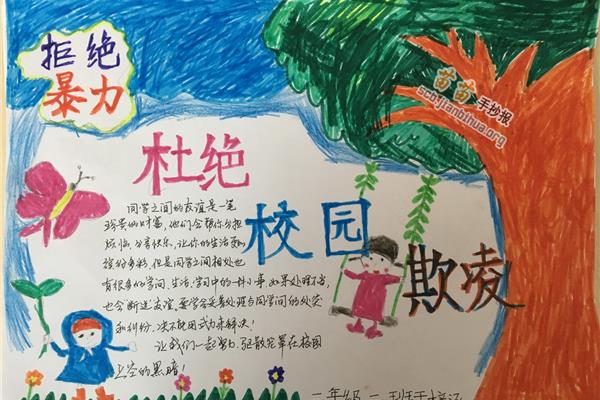 拒绝
暴力
苗苗
手抄报
scbrjianbihua.org
杜绝
校园
欺凌
同学之间的友谊是一笔
珍贵的财富,他们会帮你分担
烦恼,分享快乐,让你的生活更加
缤纷多彩,但是同学之间相处也
有很多的学问,生活,学习中的一件小事,如果处理不当,
也会断送友谊,要学会妥善处理与同学间的处突
和纠纷,决不能用武力来解决!
让我们一起努力,驱散笼罩在校园
上空的黑暗!
一年级一班